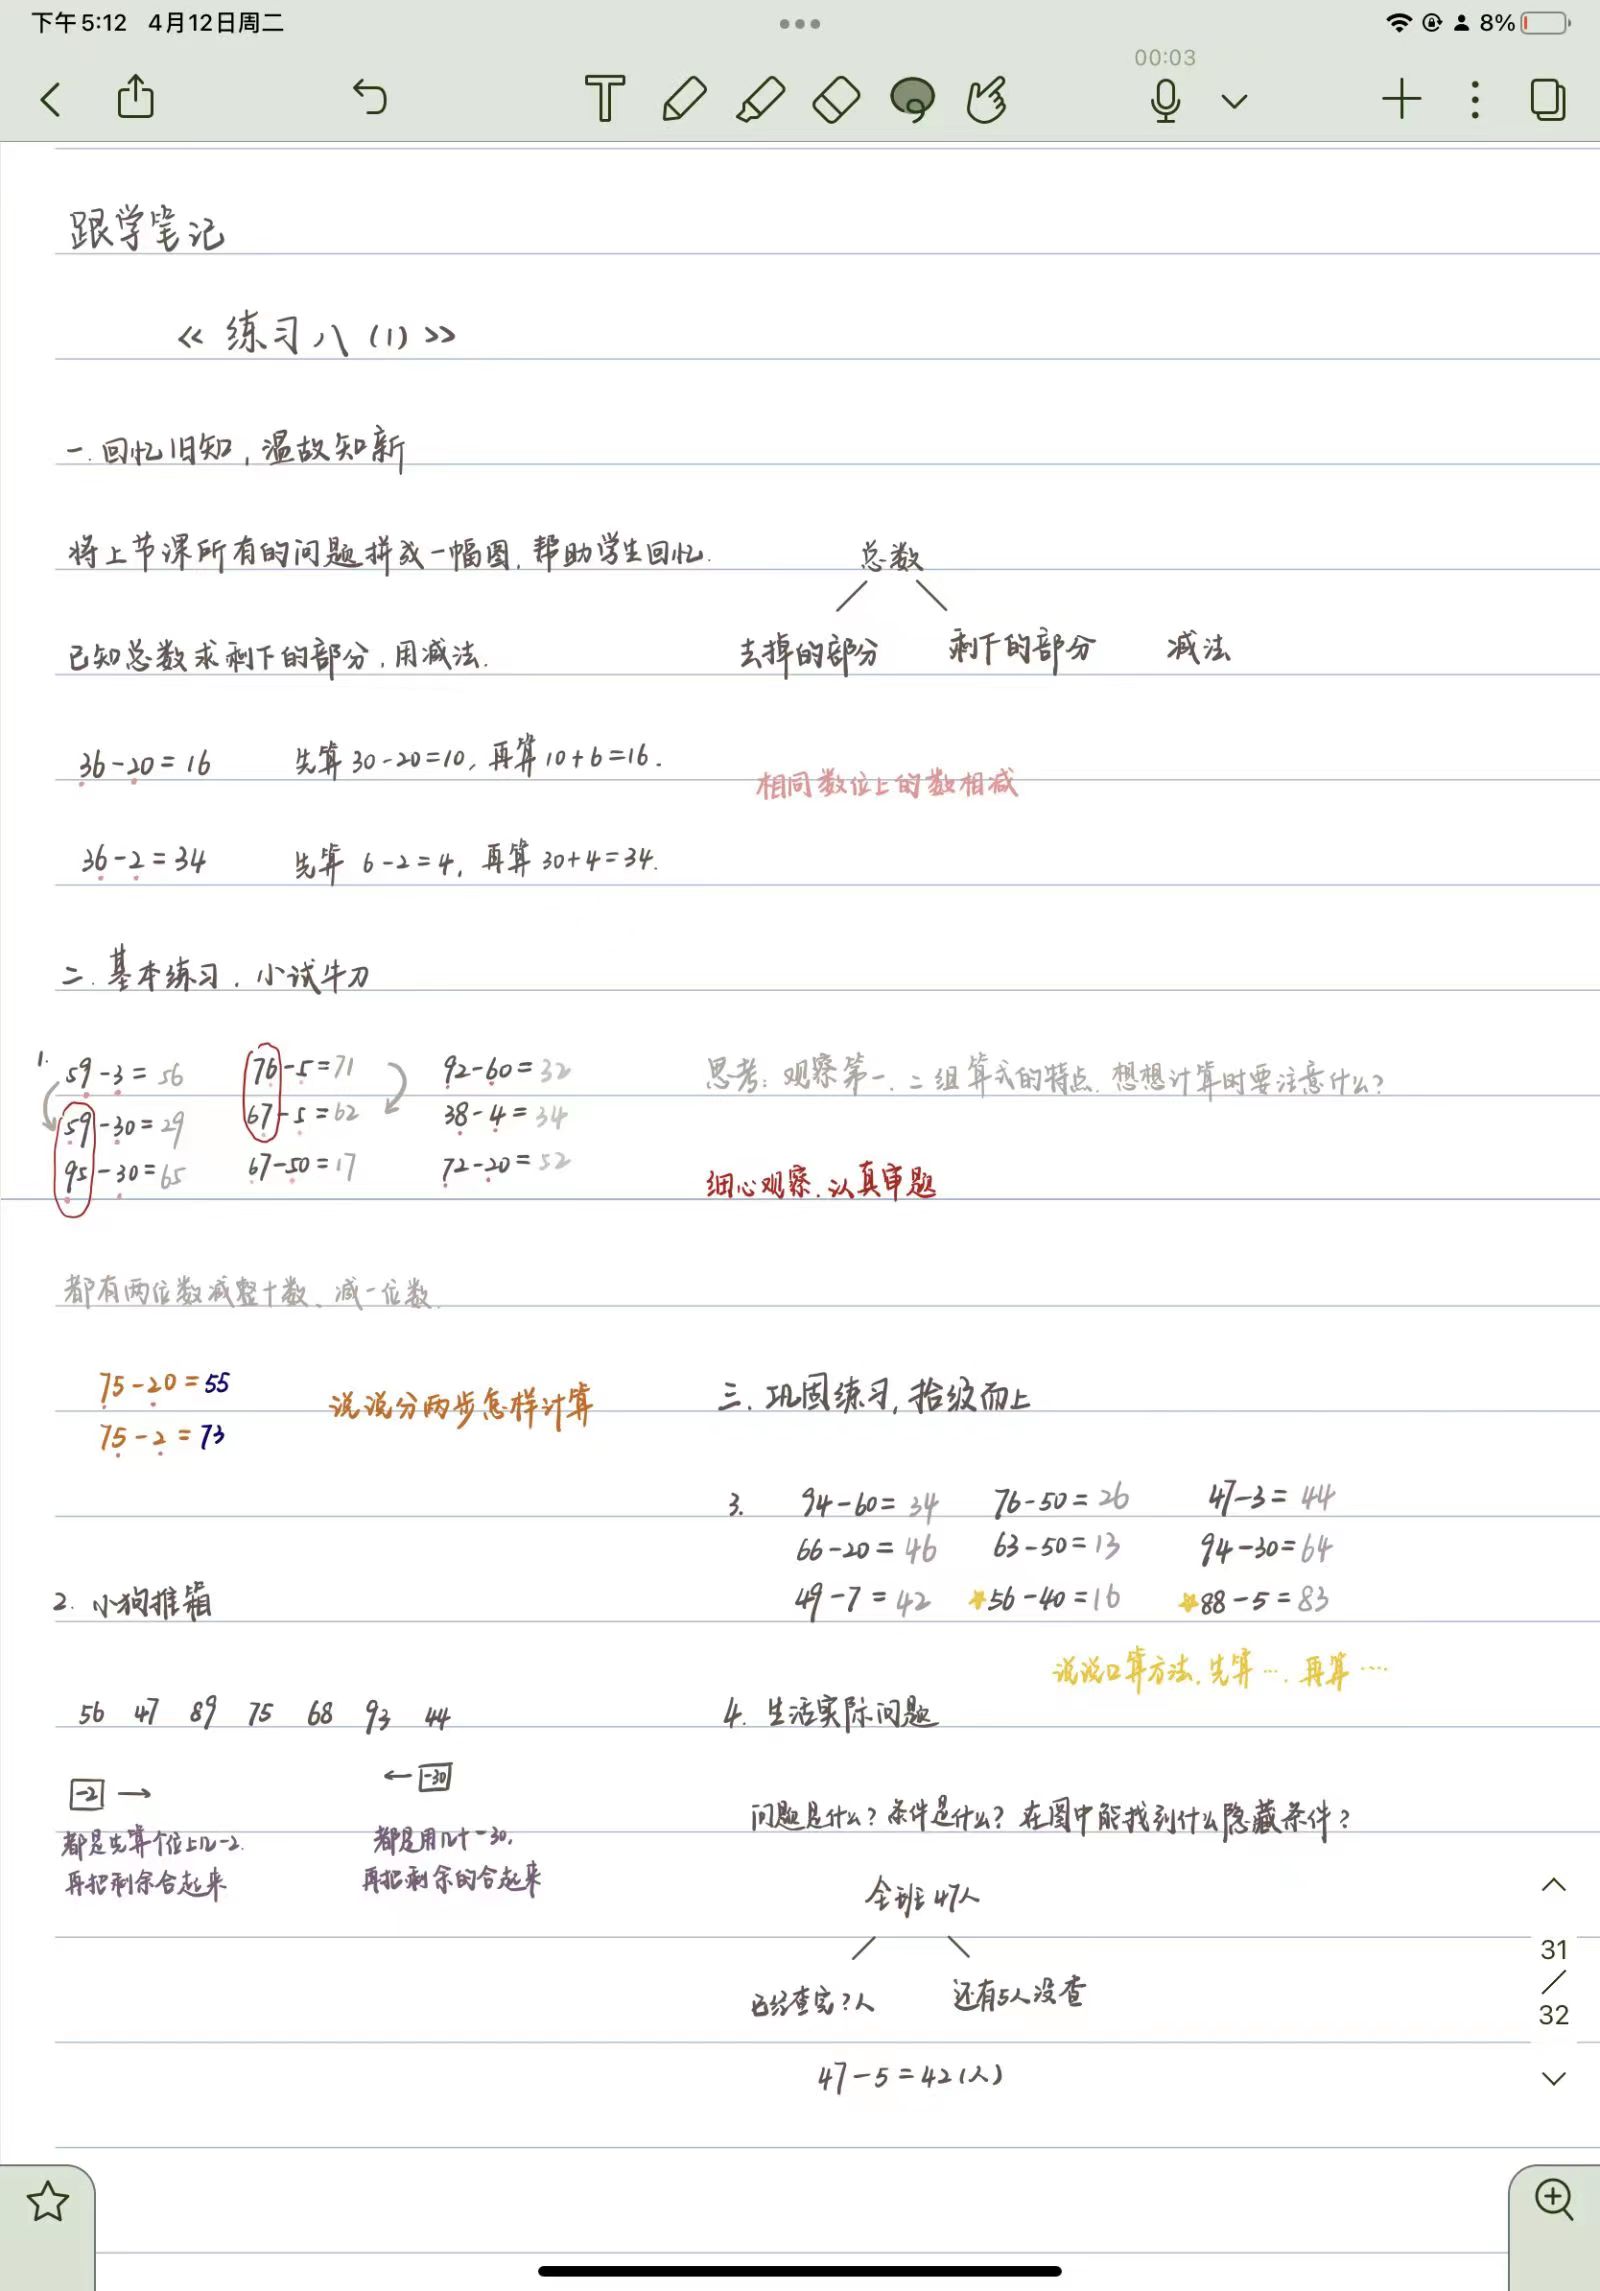 下午5:12 4月12日周二
8%
00:03
跟学笔记
《练习八(1)》
一.回忆旧知,温故知新
将上节课所有的问题拼成一幅图,帮助学生回忆.
总数
已知总数求剩下的部分,用减法.
去掉的部分 剩下的部分 减法
36-20=16 先算30-20=10,再算10+6=16.
相同数位上的数相减
36-2=34 先算 6-2=4,再算30+4=34.
二.基本练习.小试牛刀
1. 59-3=56 76-5=71 92-60=32
59-30=29 67-5=62 38-4=34
95-30=65 67-50=17 72-20=52
思考:观察第一.二组算式的特点.想想计算时要注意什么?
细心观察.认真审题
都有两位数减整十数、减一位数.
75-20=55
75-2=73
说说分两步怎样计算
2.小狗推箱
56 47 89 75 68 93 44
-2 →
← -30
都是先算个位上几-2.
再把剩余合起来
都是用几十-30,
再把剩余的合起来
三.巩固练习,拾级而上
3. 94-60=34 76-50=26 47-3=44
66-20=46 63-50=13 94-30=64
49-7=42 56-40=16 88-5=83
说说口算方法.先算….再算…
4.生活实际问题
问题是什么?条件是什么?在图中能找到什么隐藏条件?
全班47人
已经查完?人 还有5人没查
47-5=42(人)
31
/
32